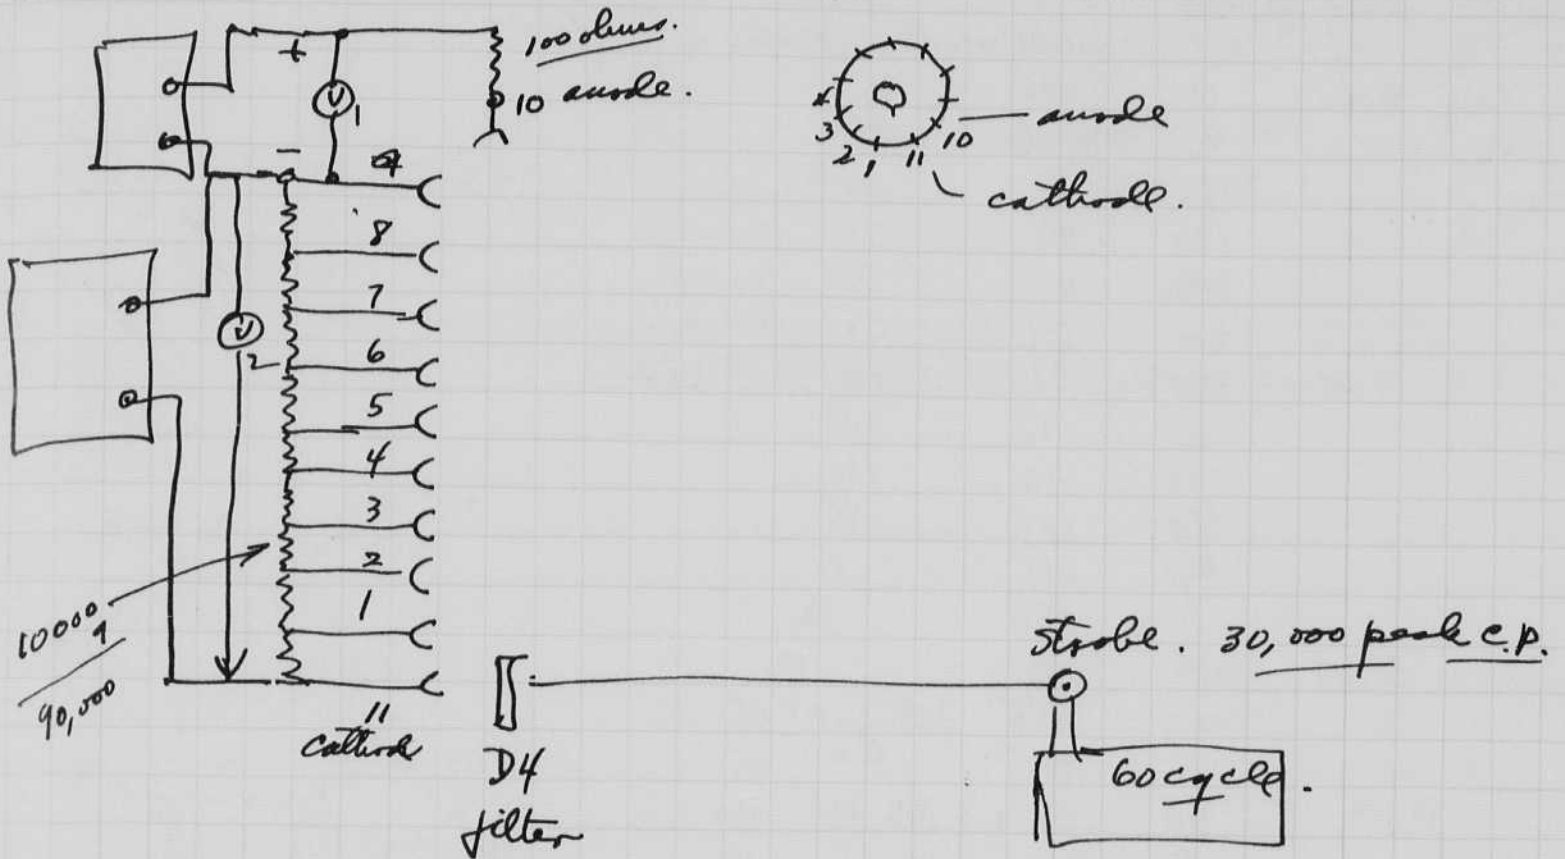 100 ohms.
+
V 1
10 anode.
-
9
8
7
V 2
6
5
4
3
2
1
10000
9
90,000
11
cathode
D4
filter
3
2
1
11
10
anode
cathode.
Strobe. 30,000 peak c.p.
60 cycle.